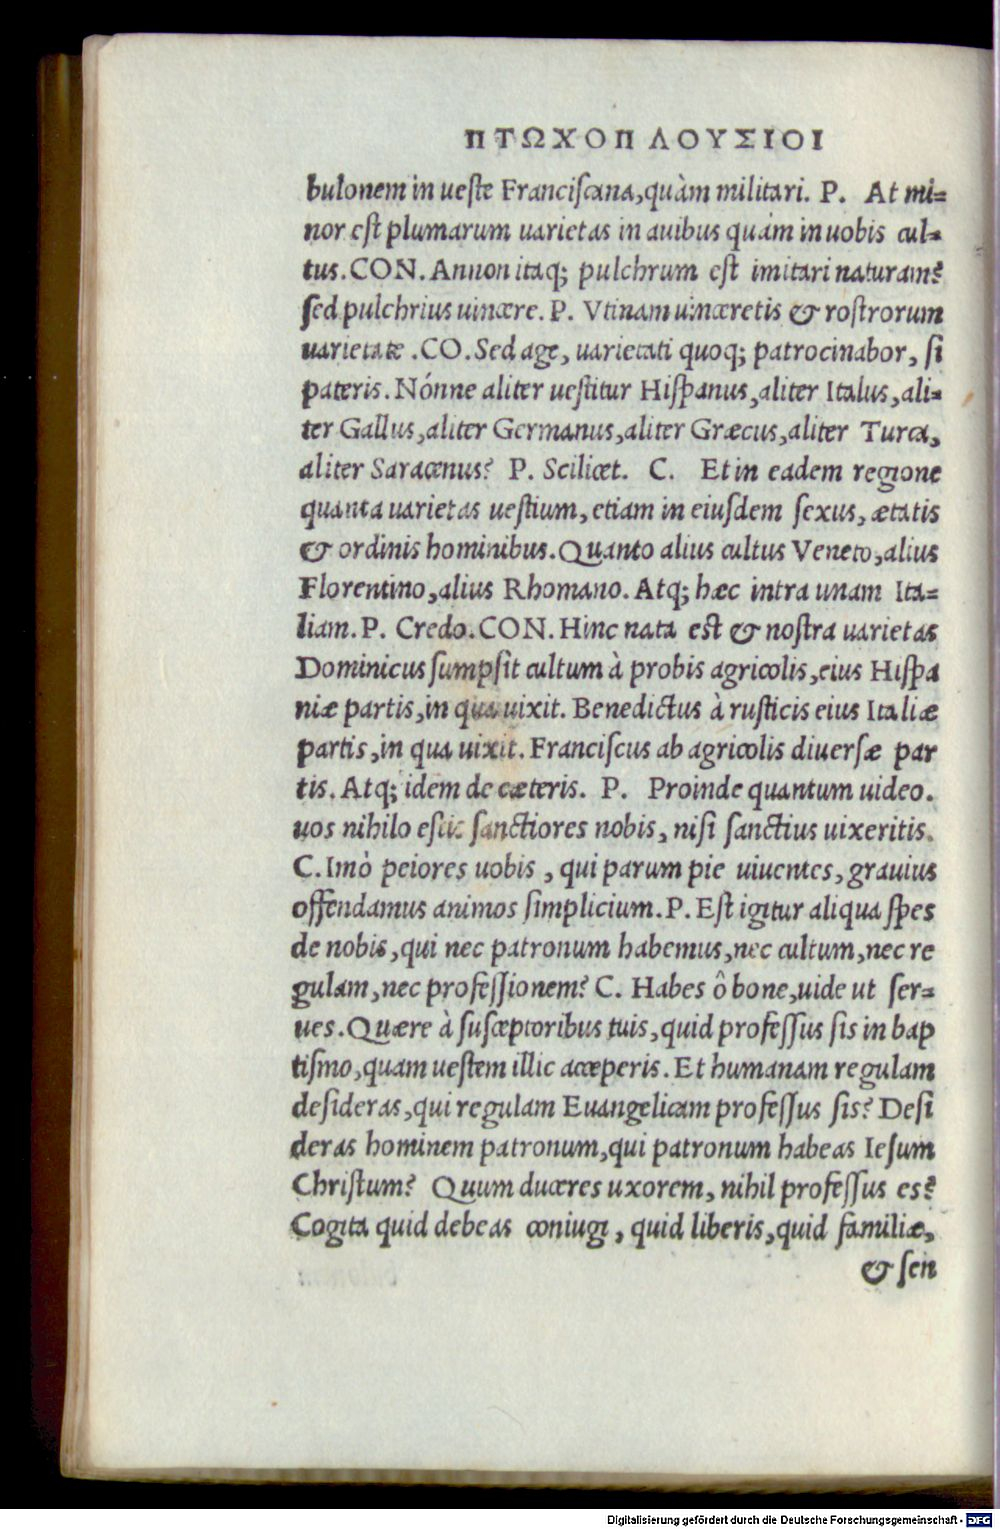 ΠΤΩΧΟΠΛΟΥΣΙΟΙ
bulonem in ueste Franciscana, quàm militari. P. At mi=
nor est plumarum uarietas in auibus quàm in uobis cul=
tus. CON. Annon itaq; pulchrum est imitari naturam?
sed pulchrius uincere. P. Vtinam uinceretis & rostrorum
uarietate. CO. Sed age, uarietati quoq; patrocinabor, si
pateris. Nónne aliter uestitur Hispanus, aliter Italus, ali=
ter Gallus, aliter Germanus, aliter Græcus, aliter Turca,
aliter Saracenus? P. Scilicet. C. Et in eadem regione
quanta uarietas uestium, etiam in eiusdem sexus, ætatis
& ordinis hominibus. Quanto alius cultus Veneto, alius
Florentino, alius Rhomano. Atq; hæc intra unam Ita=
liam. P. Credo. CON. Hinc nata est & nostra uarietas
Dominicus sumpsit cultum à probis agricolis, eius Hispa
niæ partis, in qua uixit. Benedictus à rusticis eius Italiæ
partis, in qua uixit. Franciscus ab agricolis diuersæ par
tis. Atq; idem de cæteris. P. Proinde quantum uideo.
uos nihilo estis sanctiores nobis, nisi sanctius uixeritis.
C. Imò peiores uobis, qui parum pie uiuentes, grauius
offendamus animos simplicium. P. Est igitur aliqua spes
de nobis, qui nec patronum habemus, nec cultum, nec re
gulam, nec professionem? C. Habes ô bone, uide ut ser=
ues. Quære à susceptoribus tuis, quid professus sis in bap
tismo, quam uestem illic acceperis. Et humanam regulam
desideras, qui regulam Euangelicam professus sis? Desi
deras hominem patronum, qui patronum habeas Iesum
Christum? Quum duceres uxorem, nihil professus es?
Cogita quid debeas coniugi, quid liberis, quid familiæ,
& sen
Digitalisierung gefördert durch die Deutsche Forschungsgemeinschaft - DFG